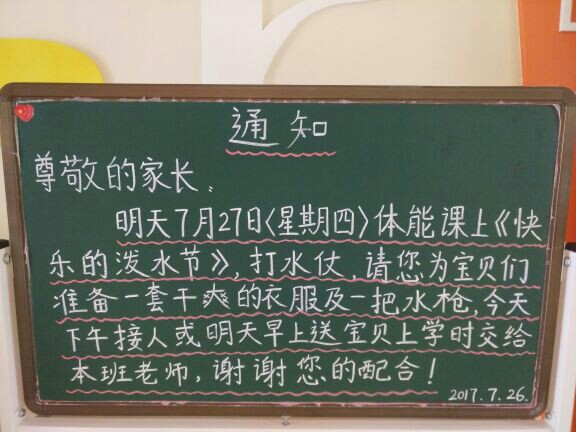 通知
尊敬的家长、
明天7月27日〈星期四〉体能课上《快
乐的泼水节》，打水仗，请您为宝贝们
准备一套干爽的衣服及一把水枪，今天
下午接人或明天早上送宝贝上学时交给
本班老师，谢谢您的配合！
2017.7.26.